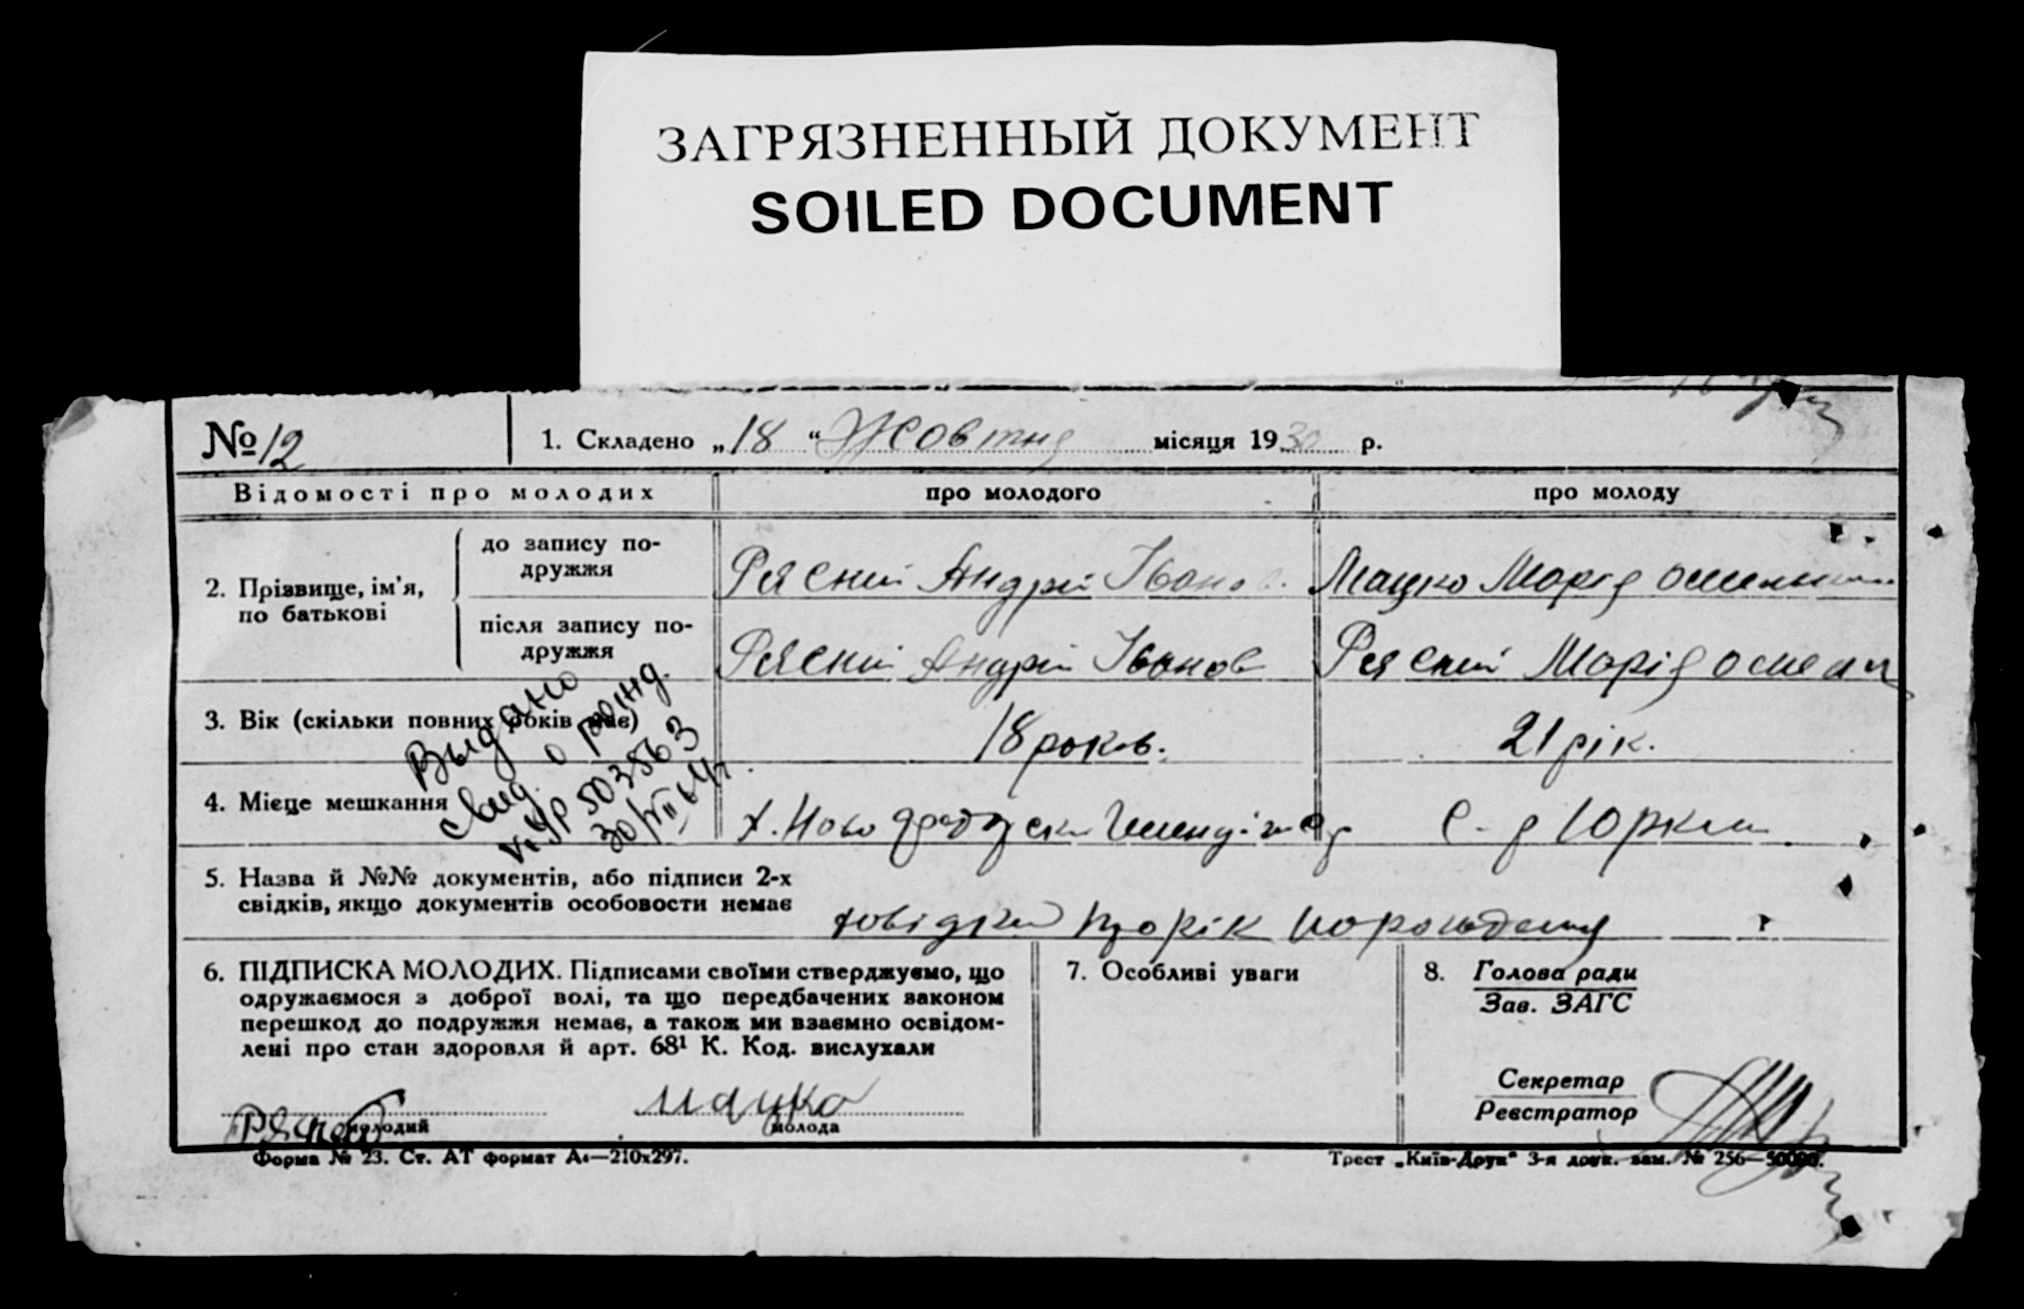 ЗАГРЯЗНЕННЫЙ ДОКУМЕНТ
SOILED DOCUMENT
№ 12
1. Складено „18“ Жовтня місяця 1930 р.
Відомості про молодих
про молодого
про молоду
2. Прізвище, ім'я, по батькові
до запису по-
дружжя
Рясний Андрій Іванов
Мацко Марія
після запису по-
дружжя
Рясний Андрій Іванов
Рясний Марія
3. Вік (скільки повних років має)
18 років.
21 рік.
4. Місце мешкання
х. Ново
с-
Юрки
Выдано
свид. о рожд.
УР 503563
30/VII
5. Назва й №№ документів, або підписи 2-х
свідків, якщо документів особовости немає
довідки про рік
6. ПІДПИСКА МОЛОДИХ. Підписами своїми стверджуємо, що
одружаємося з доброї волі, та що передбачених законом
перешкод до подружжя немає, а також ми взаємно освідом-
лені про стан здоровля й арт. 68¹ К. Код. вислухали
молодий
Мацко
молода
7. Особливі уваги
8. Голова ради
Зав. ЗАГС
Секретар
Реєстратор
Форма № 23. Ст. АТ формат А₄—210х297.
Трест „Київ-Друк“ 3-я друк. зам. № 256—50000.